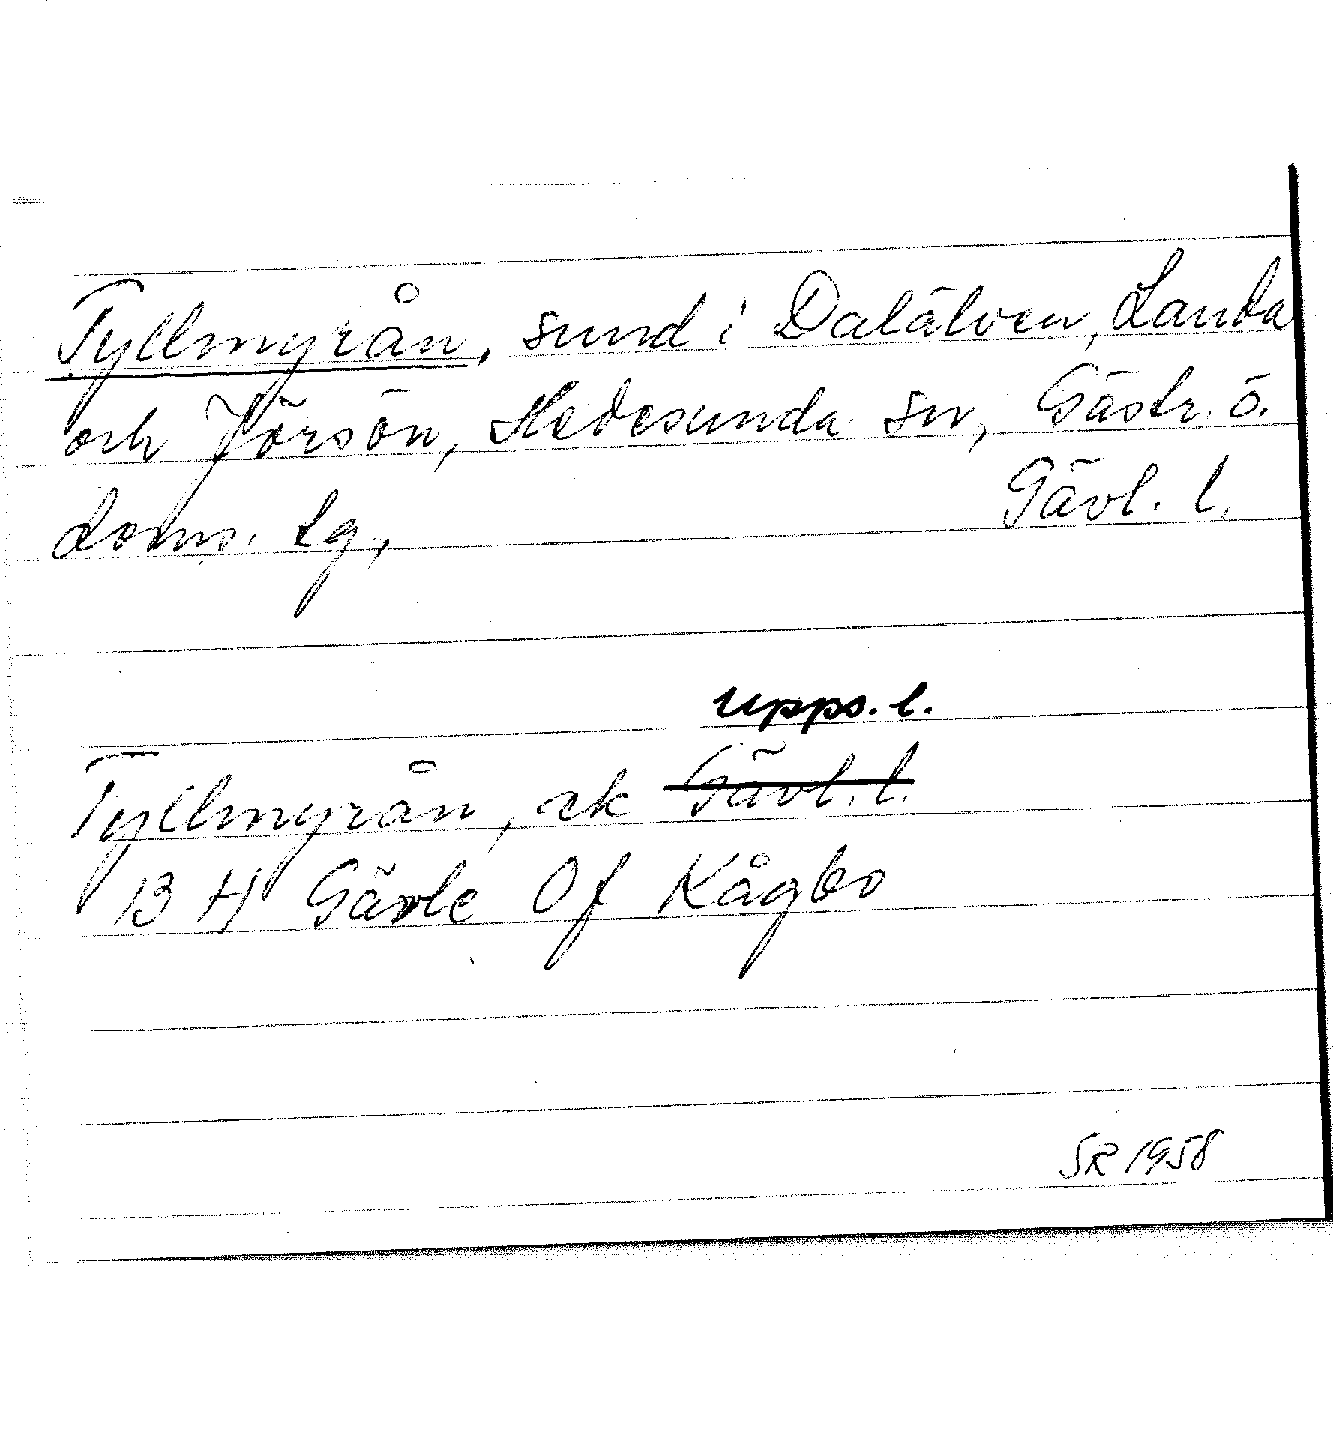 Tyllmyrån, sund i Dalälven, Landa
och Jörsön, Hedesunda sn, Gästr. ö.
doms. lg, Gävl. l.
Upps. l.
Tyllmyrån, ek Gävl. l.
13 H Gävle Of Kågbo
SR 1958